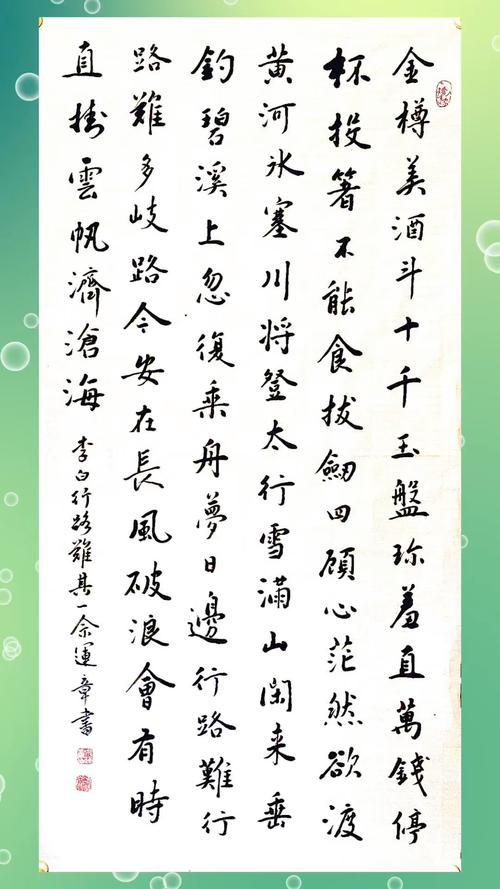 金樽美酒斗十千玉盤珎羞直萬錢停
杯投箸不能食拔劔四顧心茫然欲渡
黄河氷塞川将登太行雪滿山閑来垂
釣碧溪上忽復乗舟夢日邊行路難行
路難多岐路今安在長風破浪會有時
直掛雲帆濟滄海
李白行路難其一余運章書